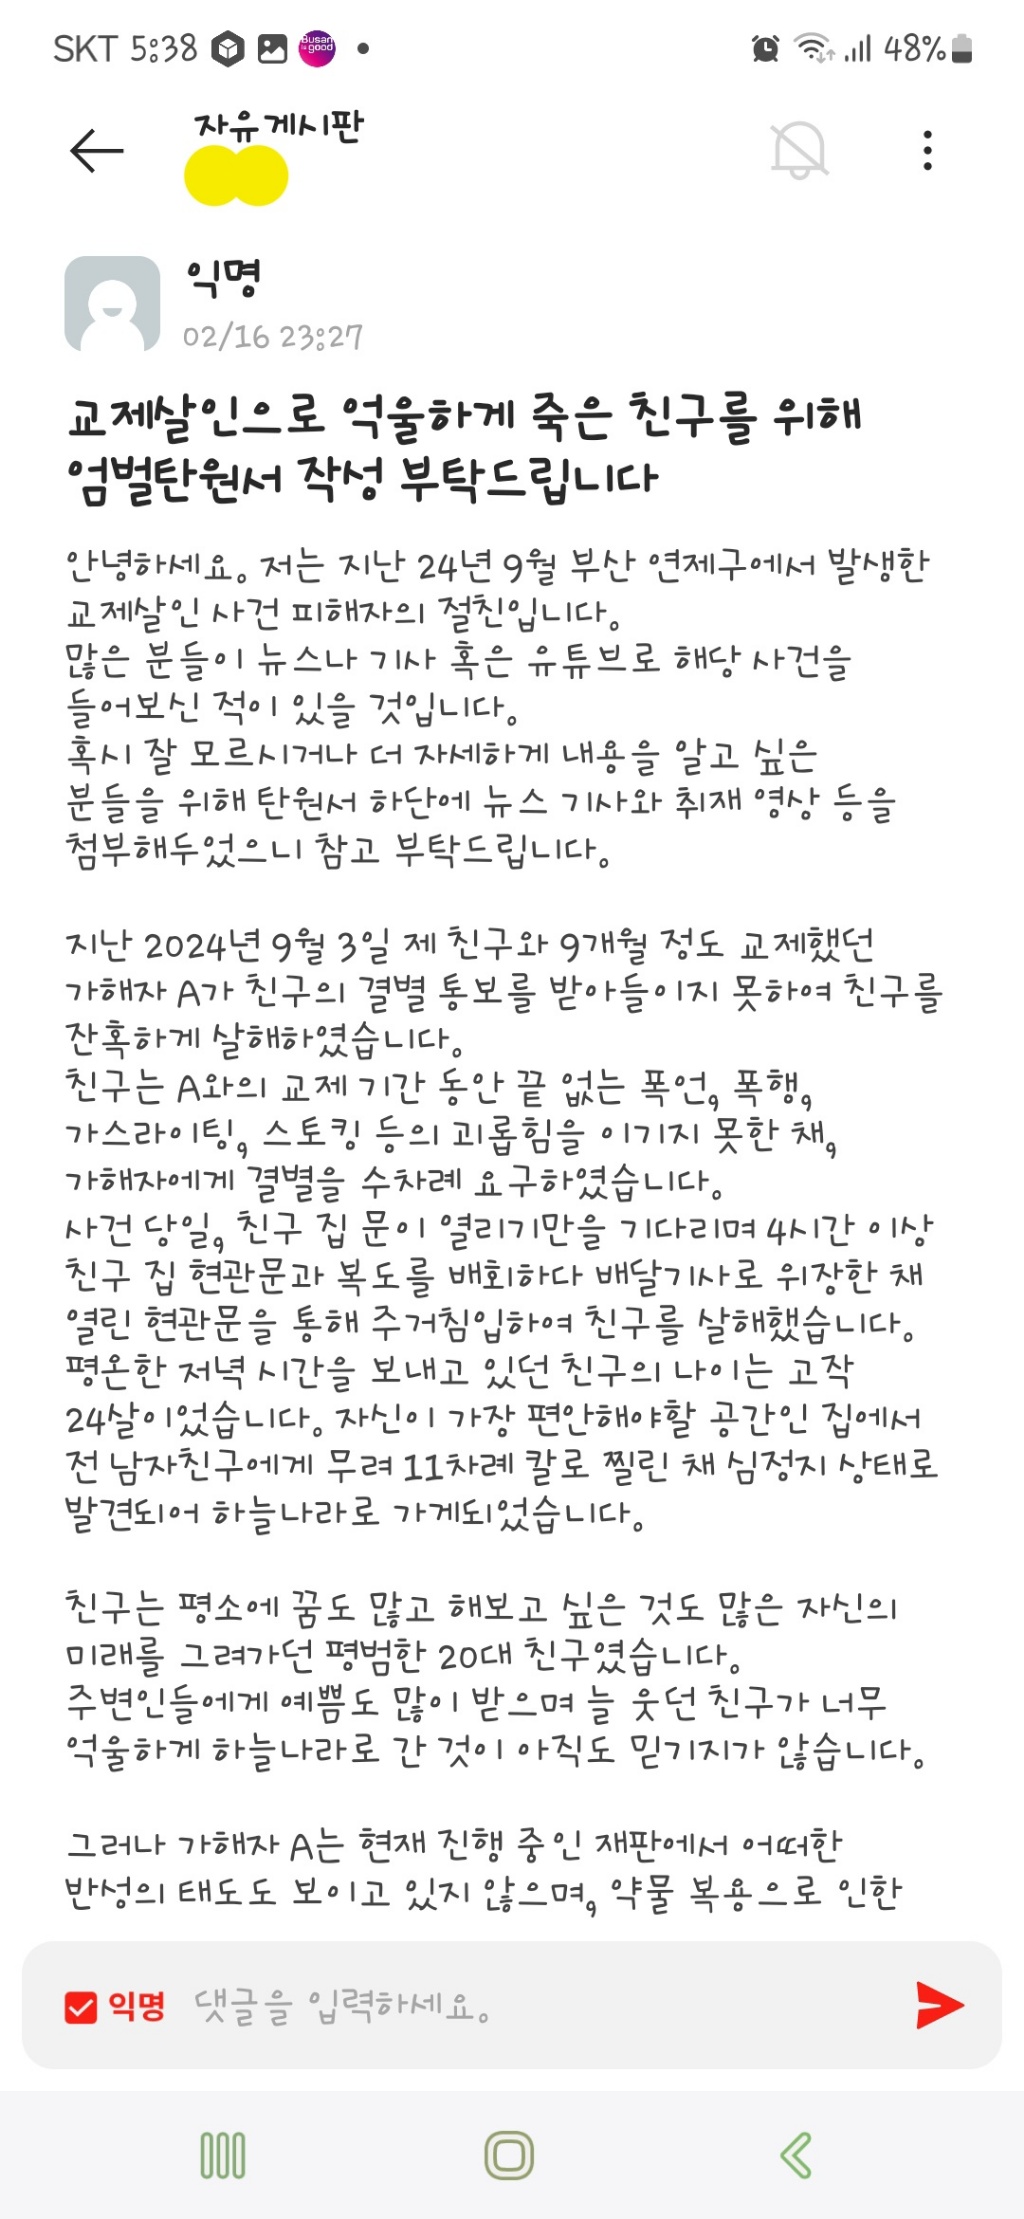 SKT 5:38 Busan is good 48%
자유게시판
익명
02/16 23:27
교제살인으로 억울하게 죽은 친구를 위해
엄벌탄원서 작성 부탁드립니다
안녕하세요. 저는 지난 24년 9월 부산 연제구에서 발생한
교제살인 사건 피해자의 절친입니다.
많은 분들이 뉴스나 기사 혹은 유튜브로 해당 사건을
들어보신 적이 있을 것입니다.
혹시 잘 모르시거나 더 자세하게 내용을 알고 싶은
분들을 위해 탄원서 하단에 뉴스 기사와 취재 영상 등을
첨부해두었으니 참고 부탁드립니다.
지난 2024년 9월 3일 제 친구와 9개월 정도 교제했던
가해자 A가 친구의 결별 통보를 받아들이지 못하여 친구를
잔혹하게 살해하였습니다.
친구는 A와의 교제 기간 동안 끝 없는 폭언, 폭행,
가스라이팅, 스토킹 등의 괴롭힘을 이기지 못한 채,
가해자에게 결별을 수차례 요구하였습니다.
사건 당일, 친구 집 문이 열리기만을 기다리며 4시간 이상
친구 집 현관문과 복도를 배회하다 배달기사로 위장한 채
열린 현관문을 통해 주거침입하여 친구를 살해했습니다.
평온한 저녁 시간을 보내고 있던 친구의 나이는 고작
24살이었습니다. 자신이 가장 편안해야할 공간인 집에서
전 남자친구에게 무려 11차례 칼로 찔린 채 심정지 상태로
발견되어 하늘나라로 가게되었습니다.
친구는 평소에 꿈도 많고 해보고 싶은 것도 많은 자신의
미래를 그려가던 평범한 20대 친구였습니다.
주변인들에게 예쁨도 많이 받으며 늘 웃던 친구가 너무
억울하게 하늘나라로 간 것이 아직도 믿기지가 않습니다.
그러나 가해자 A는 현재 진행 중인 재판에서 어떠한
반성의 태도도 보이고 있지 않으며, 약물 복용으로 인한
익명 댓글을 입력하세요.